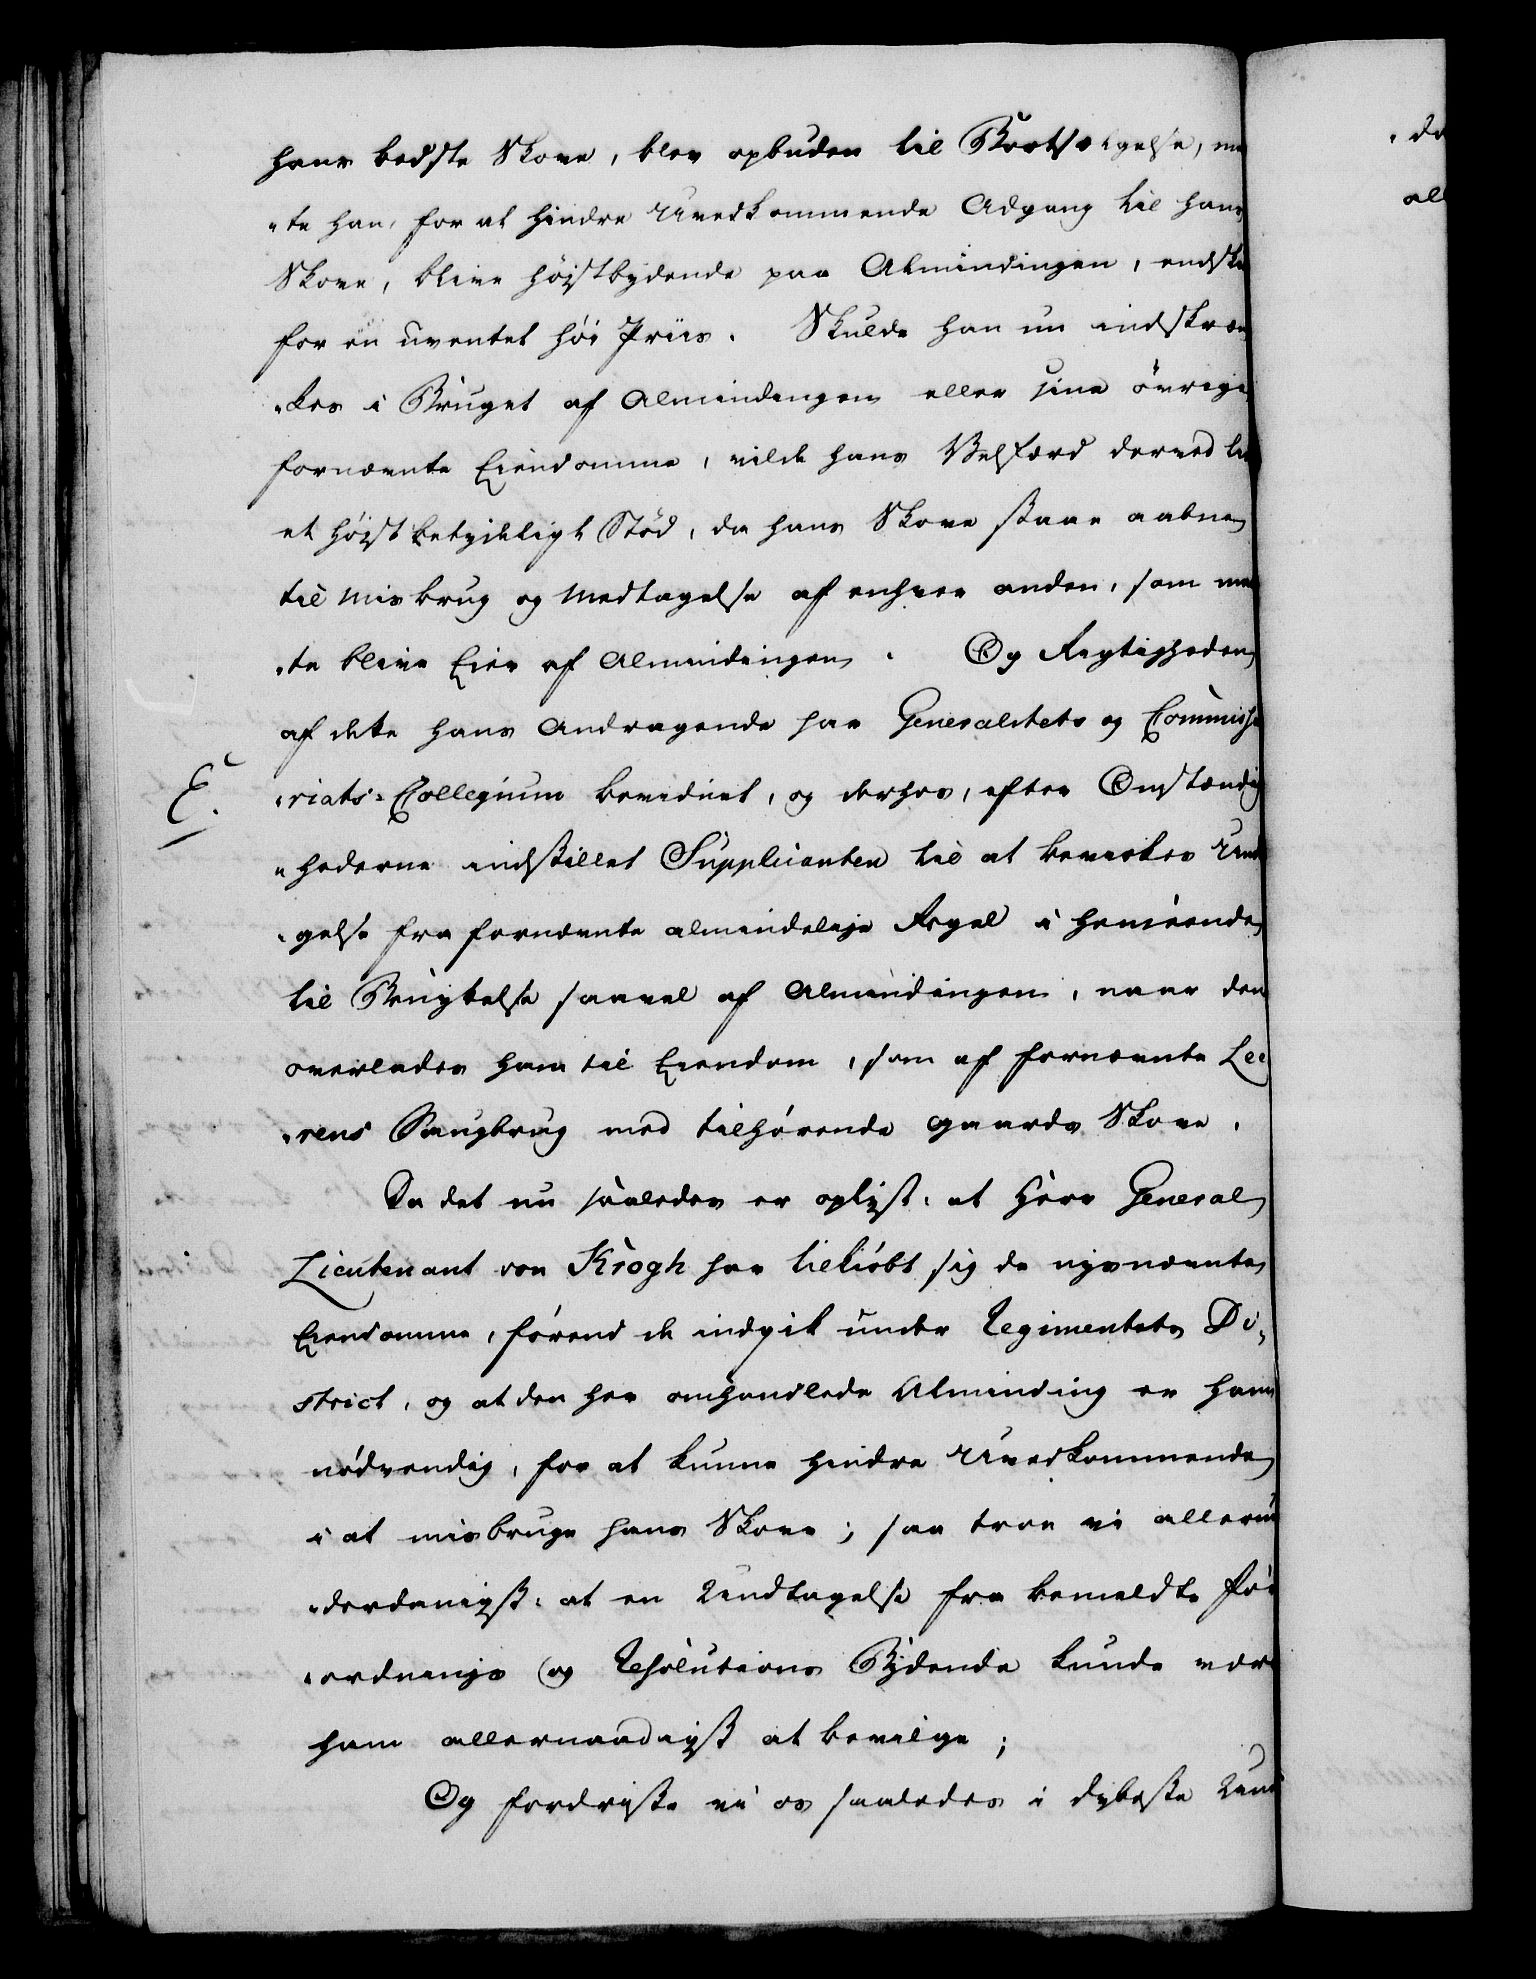 hans bedste Skove, blev opbuden til Bortsælgelse, maa
„te han, for at hindre Uvedkommende Adgang til hans
Skove, blive høistbydende paa Almindingen, endskiønt
for en uventet høi Priis. Skulde han nu indskræn
„kes i Bruget af Almindingen eller sine øvrige
fornævnte Eiendomme, vilde hans Velfærd derved lide
et høist betydeligt Stød, da hans Skove staae aabne
til Misbrug og Medtagelse af enhver anden, som maa
„te blive Eier af Almindingen. Og Rigtigheden
af dette hans Andragende har Generalitets og Commissa
E.
„riats-Collegium bevidnet, og derhos, efter Omstændig
„hederne indstillet Supplicanten til at bevirkes Undta
„gelse fra fornævnte almindelige Regel i Henseende
til Benyttelse saavel af Almindingen, naar den
overlades ham til Eiendom, som af fornævnte Lee
„rens Saugbrug med tilhørende Gaards Skove.
Da det nu saaledes er oplyst: at Herr General
Lieutenant von Krogh har tilkiøbt sig de nysnævnte
Eiendomme, førend de indgik under Regimentets Di„
strict, og at den her omhandlede Alminding er ham
nødvendig, for at kunne hindre Uvedkommende
i at misbruge hans Skove; saa troe vi allerun
„derdanigst: at en Undtagelse fra bemeldte For
„ordnings og Resolutions Bydende kunde være
ham allernaadigst at bevilge;
Og fordriste vi os saaledes i dybeste Und